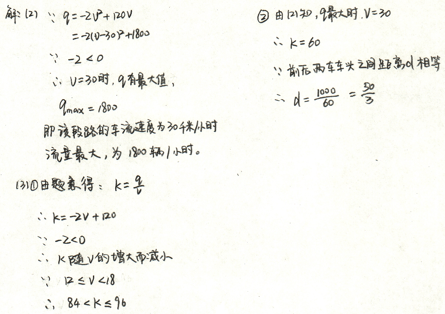 解:(2) ∵ q=-2v²+120v
=-2(v-30)²+1800
∵ -2<0
∴ v=30时,q有最大值,
qmax=1800
即该段路的车流速度为30千米/小时
流量最大,为1800辆/小时。
(3)①由题意得: k=q/v
∴ k=-2v+120
∵ -2<0
∴ k随v的增大而减小
∵ 12≤v<18
∴ 84<k≤96
② 由(2)知,q最大时,v=30
∴ k=60
∵ 前后两车车头之间距离d相等
∴ d=1000/60=50/3